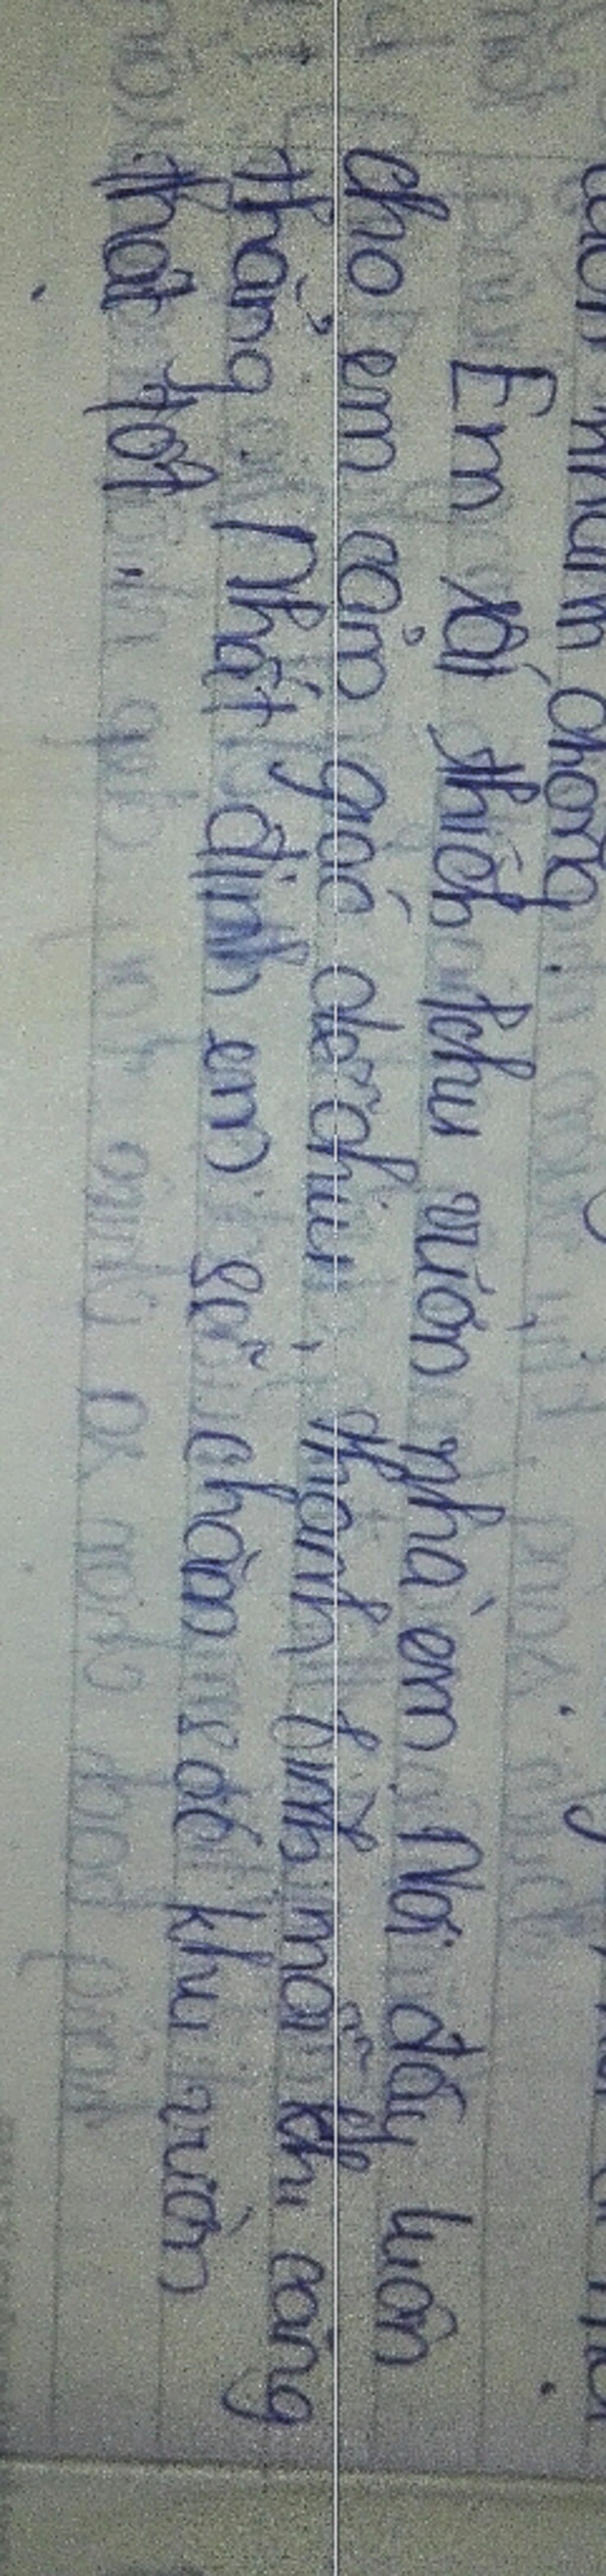 nhanh chóng.
Em rất thích khu vườn nhà em. Nơi đây luôn
cho em cảm giác dễ chịu, thanh bình mỗi khi căng
thẳng. Nhất định em sẽ chăm sóc khu vườn
thật tốt.